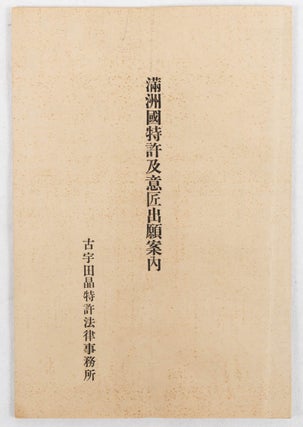 滿洲國特許及意匠出願案內
古宇田晶特許法律事務所